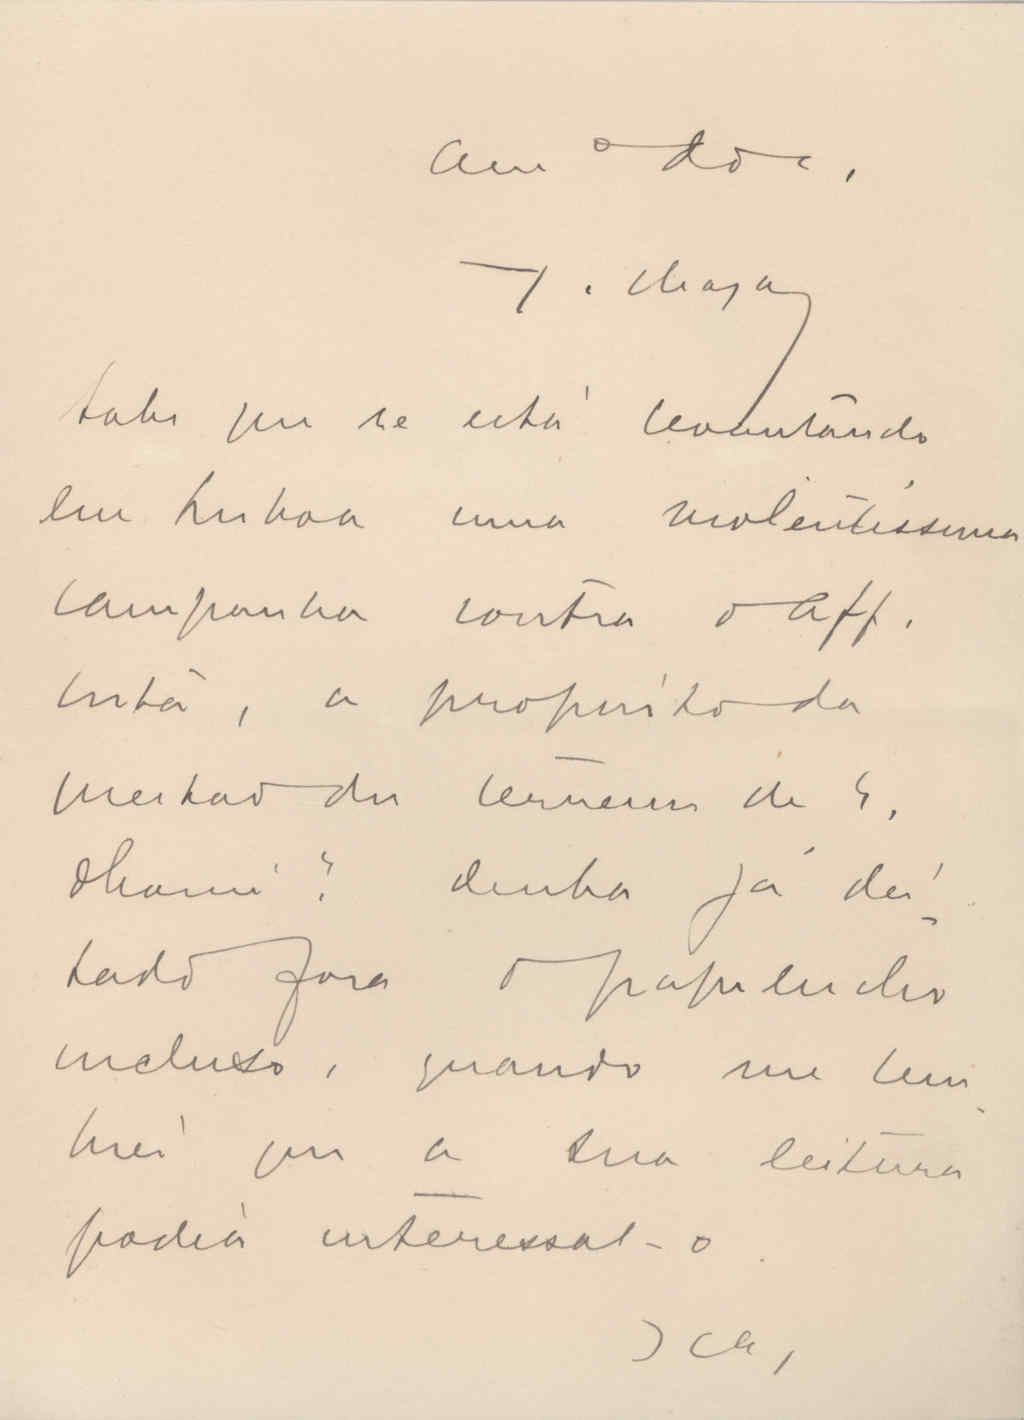 Am o do c,
sabe que se está levantando
em Lisboa uma violentissima
campanha contra o Aff.
Costa, a proposito da
questão dos terrenos de S.
Thomé? Tinha já dei-
tado fora o papelucho
incluso, quando me lem-
brei que a sua leitura
podia interessal-o.